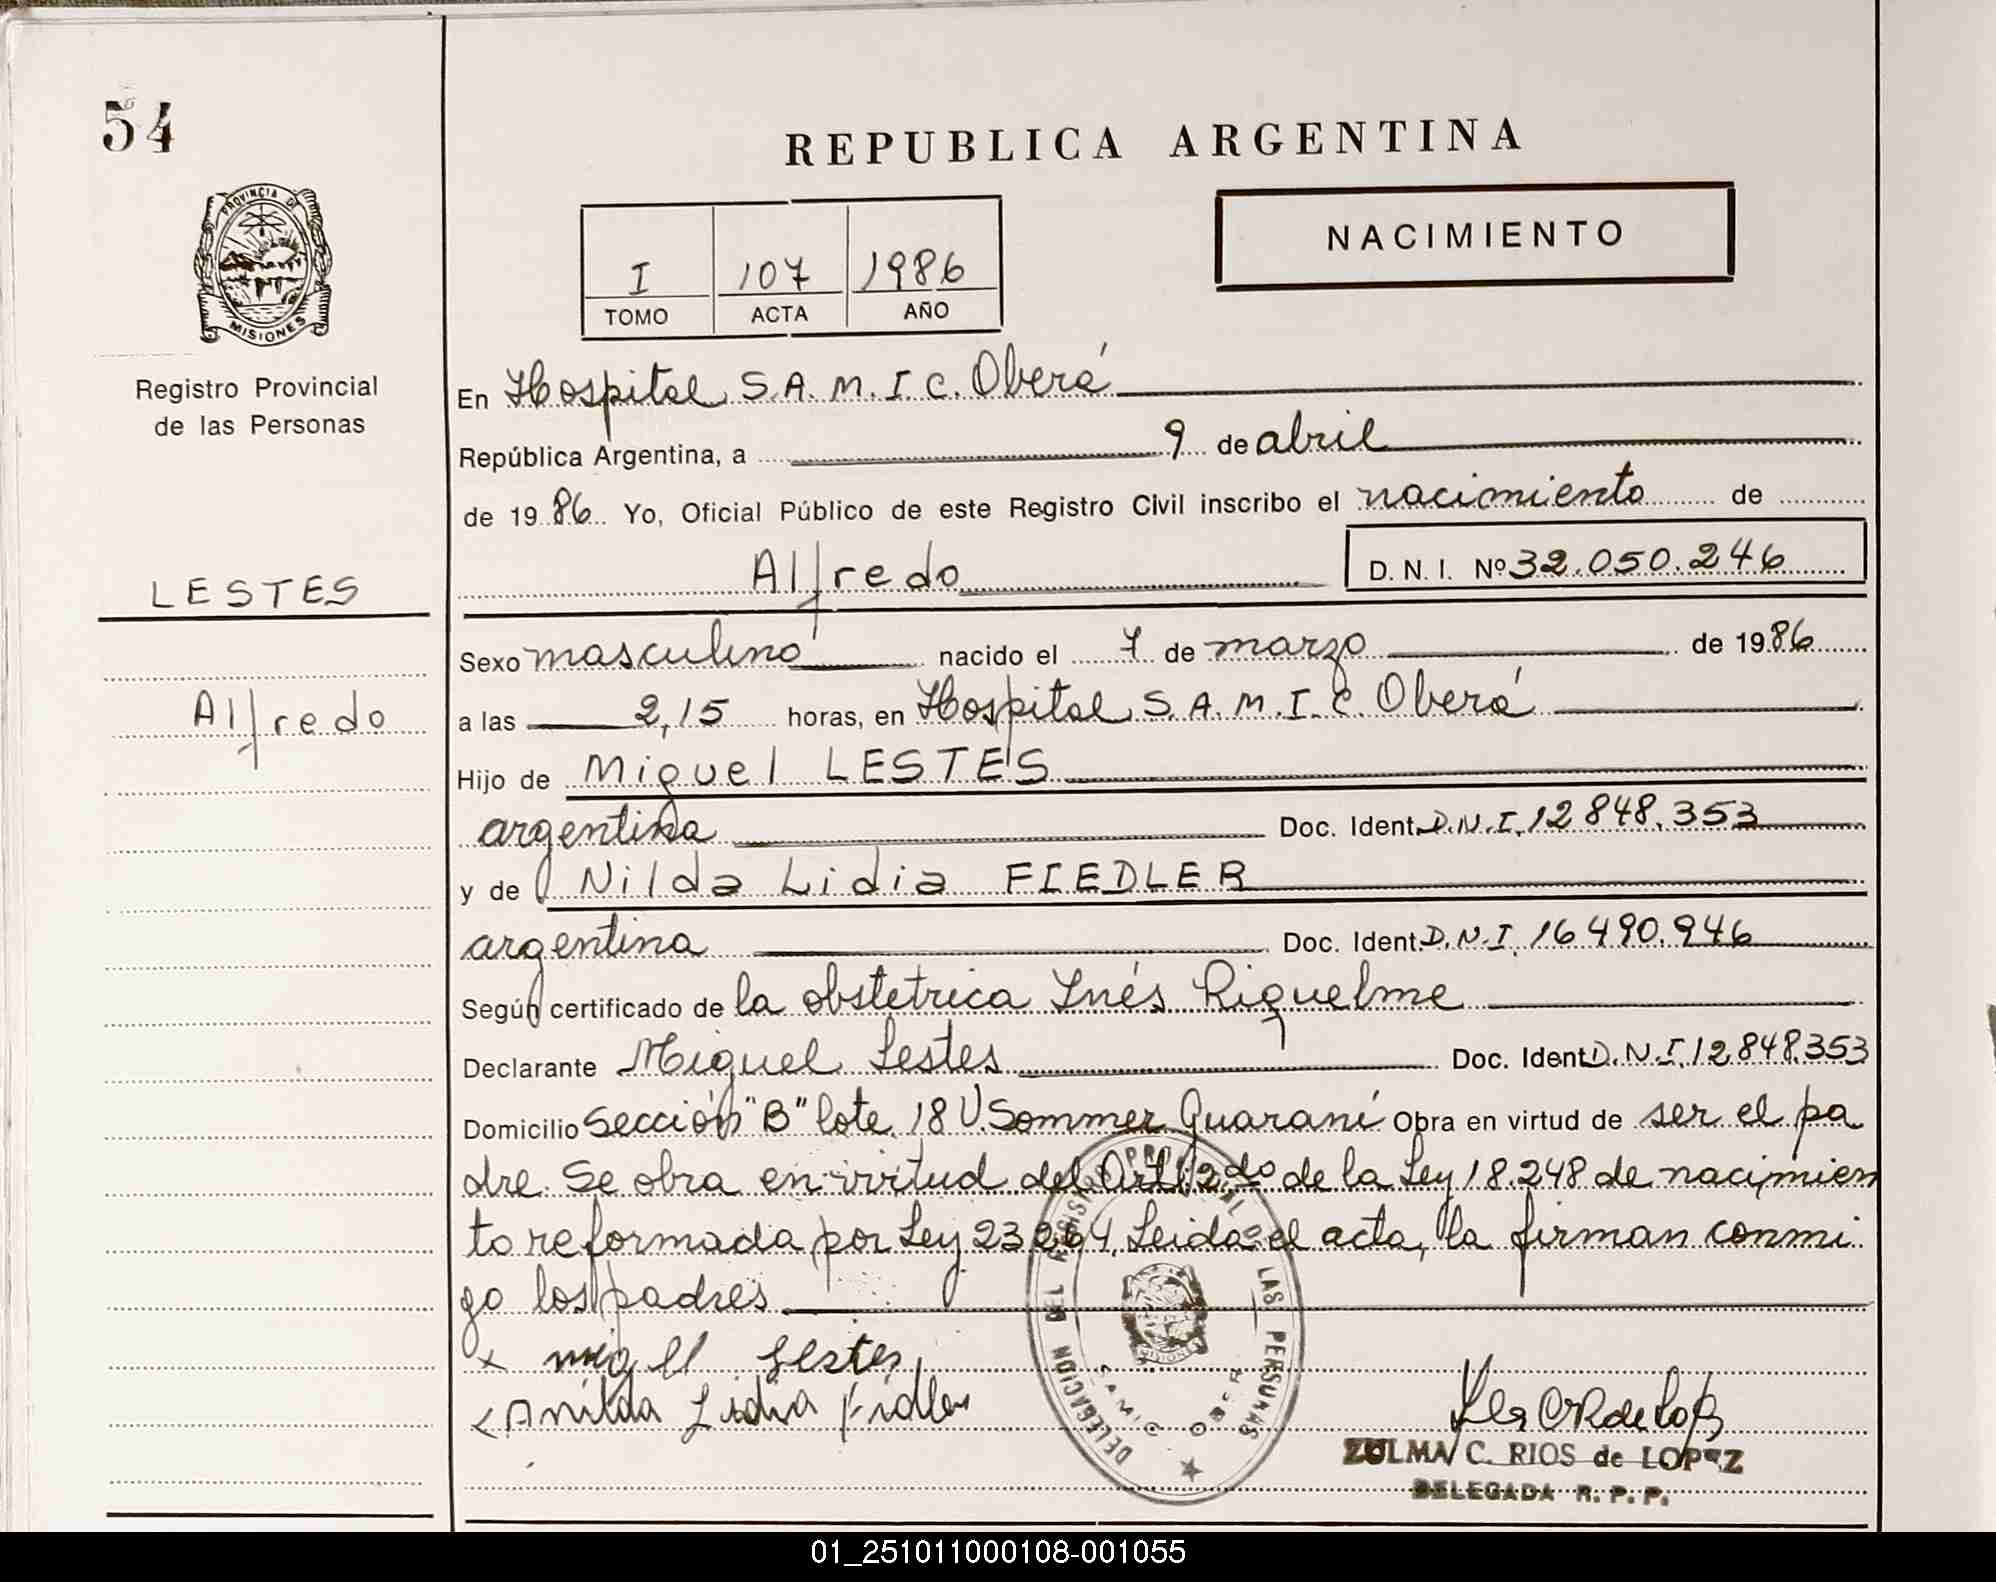 54
REPUBLICA ARGENTINA
PROVINCIA DE
MISIONES
NACIMIENTO
I 107 1986
TOMO ACTA AÑO
Registro Provincial
de las Personas
En Hospital S.A.M.I.C. Oberá
República Argentina, a 9 de abril
de 1986. Yo, Oficial Público de este Registro Civil inscribo el nacimiento de
Alfredo D.N.I. Nº 32.050.246
LESTES
Sexo masculino nacido el 7 de marzo de 1986
Alfredo
a las 2,15 horas, en Hospital S.A.M.I.C. Oberá
Hijo de Miguel LESTES
argentina Doc. Ident. D.N.I. 12848.353
y de Nilda Lidia FIEDLER
argentina Doc. Ident. D.N.I. 16490.946
Según certificado de la obstetrica Inés Riquelme
Declarante Miguel Lestes Doc. Ident. D.N.I. 12.848.353
Domicilio Sección "B" lote 18 V. Sommer Guaraní Obra en virtud de ser el pa
dre. Se obra en virtud del Art. 2do de la Ley 18.248 de nacimien
to reformada por Ley 23264. Leida el acta, la firman conmi
go los padres
x migell Lestes
Anilda Lidia Fidler
DELEGACION DEL REGISTRO PROVINCIAL DE LAS PERSONAS
SAMIC OBERA
MISIONES
ZULMA C. RIOS de LOPEZ
DELEGADA R. P. P.
01_251011000108-001055